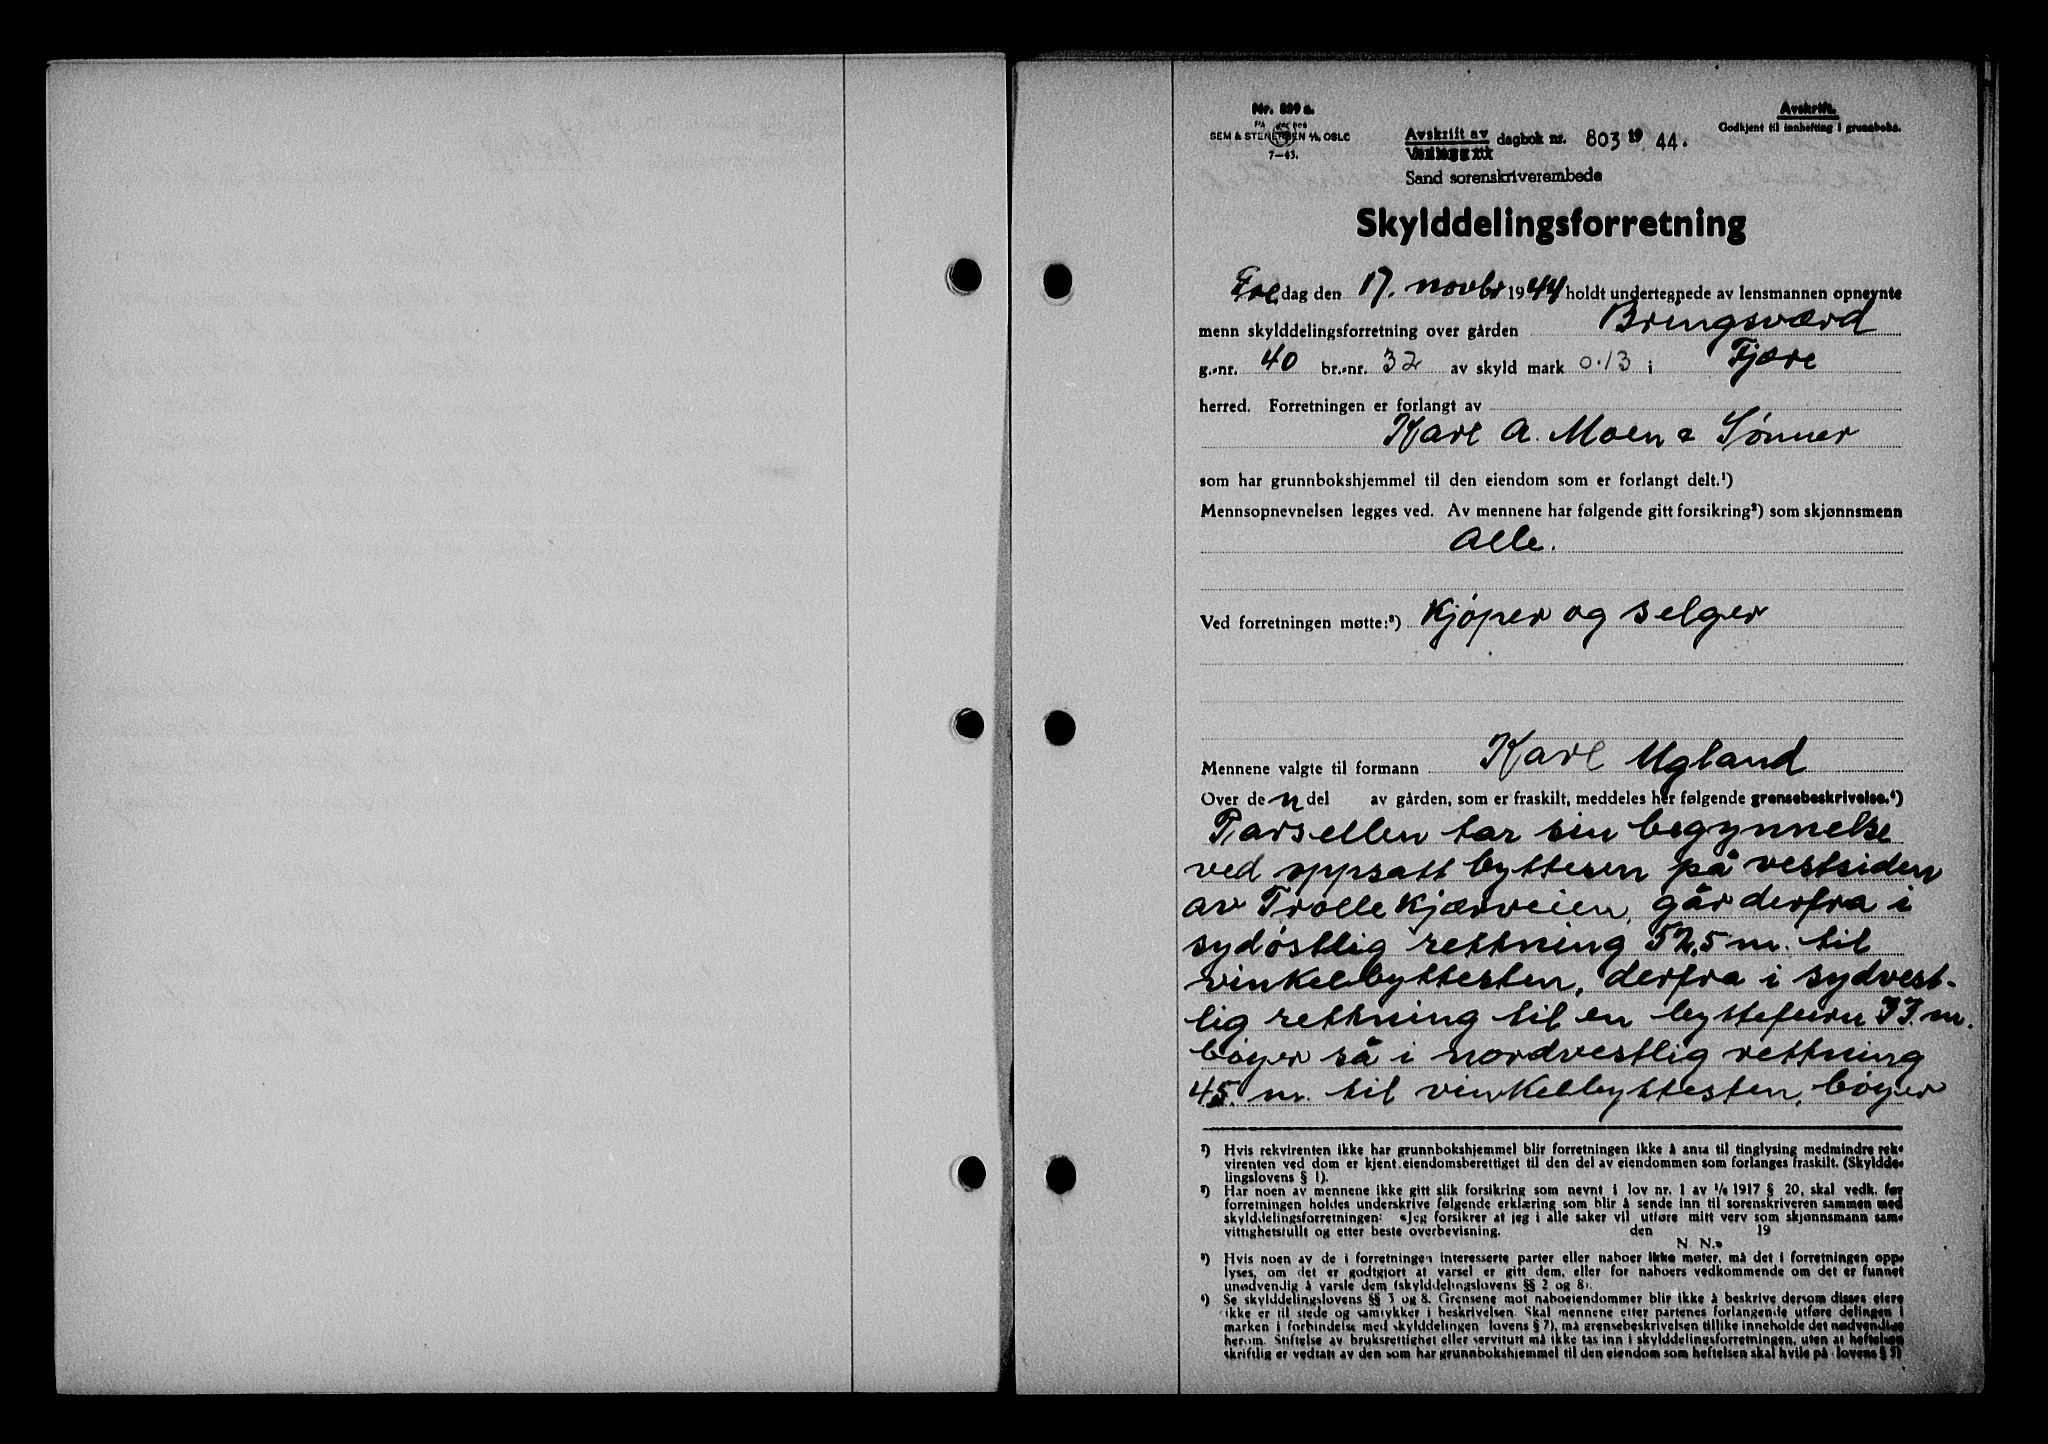 Nr. 889 a.
På lager hos
SEM & STENERSEN A/S OSLO
7—43.
Avskrift.
Godkjent til innhefting i grunnboka.
Avskrift av dagbok nr. 803 19 44.
Sand sorenskriverembede
Skylddelingsforretning
Fre dag den 17. novbr 1944 holdt undertegnede av lensmannen opnevnte
menn skylddelingsforretning over gården Bringsværd
g.-nr. 40 br.-nr. 32 av skyld mark 0.13 i Fjære
herred. Forretningen er forlangt av
Karl A. Moen & Sønner
som har grunnbokshjemmel til den eiendom som er forlangt delt.¹)
Mennsopnevnelsen legges ved. Av mennene har følgende gitt forsikring²) som skjønnsmenn
Alle.
Ved forretningen møtte:³) Kjøper og selger
Mennene valgte til formann Karl Ugland
Over de n del av gården, som er fraskilt, meddeles her følgende grensebeskrivelse.⁴)
Parsellen tar sin begynnelse
ved oppsatt byttesen på vestsiden
av Trollekjærveien, går derfra i
sydøstlig rettning 52,5 m. til
vinkelbyttesten, derfra i sydvest-
lig rettning til en byttefurn 33. m.
bøyer så i nordvestlig rettning
45. m. til vinkelbyttesten, bøyer
¹) Hvis rekvirenten ikke har grunnbokshjemmel blir forretningen ikke å anta til tinglysing medmindre rek-
virenten ved dom er kjent eiendomsberettiget til den del av eiendommen som forlanges fraskilt. (Skyldde-
lingslovens § 1).
²) Har noen av mennene ikke gitt slik forsikring som nevnt i lov nr. 1 av 1/6 1917 § 20, skal vedk. før
forretningen holdes underskrive følgende erklæring som blir å sende inn til sorenskriveren sammen med
skylddelingsforretningen: «Jeg forsikrer at jeg i alle saker vil utføre mitt verv som skjønnsmann sam-
vittighetsfullt og etter beste overbevisning. den 19
N. N.»
³) Hvis noen av de i forretningen interesserte parter eller naboer ikke møter, må det i forretningen opp-
lyses, om det er godtgjort at varsel er gitt dem, eller for naboers vedkommende om det er funnet
unødvendig å varsle dem (skylddelingslovens §§ 2 og 8).
⁴) Se skylddelingslovens §§ 3 og 8. Grensene mot naboeiendommer blir ikke å beskrive dersom disses eiere
ikke er til stede og samtykker i beskrivelsen. Skal mennene etter partenes forlangende utføre delingen i
marken i forbindelse med skylddelingen (lovens § 7), må grensebeskrivelsen tillike inneholde det nødvendige
herom. Stiftelse av bruksrettighet eller servitutt må ikke tas inn i skylddelingsforretningen, uten at heftelsen
skriftlig er vedtatt av den som har grunnbokshjemmel til den eiendom som heftelsen skal hvile på (lovens § 5)